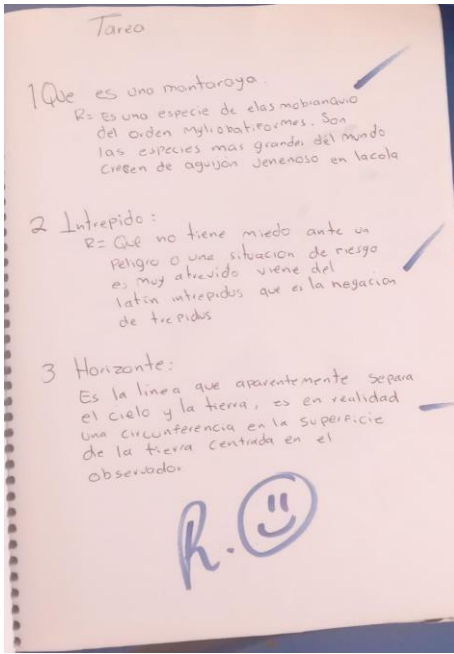 Tarea
1 Que es una mantaraya.
R= Es una especie de elasmobianquio
del orden myliobatiformes. Son
las especies mas grandes del mundo
Cresen de aguijón venenoso en lacola
2 Intrepido:
R= Que no tiene miedo ante un
peligro o una situacion de riesgo
es muy atrevido viene del
latin intrepidus que es la negacion
de trepidus
3 Horizonte:
Es la línea que aparentemente separa
el cielo y la tierra, es en realidad
una circunferencia en la superficie
de la tierra centrada en el
observador
R.